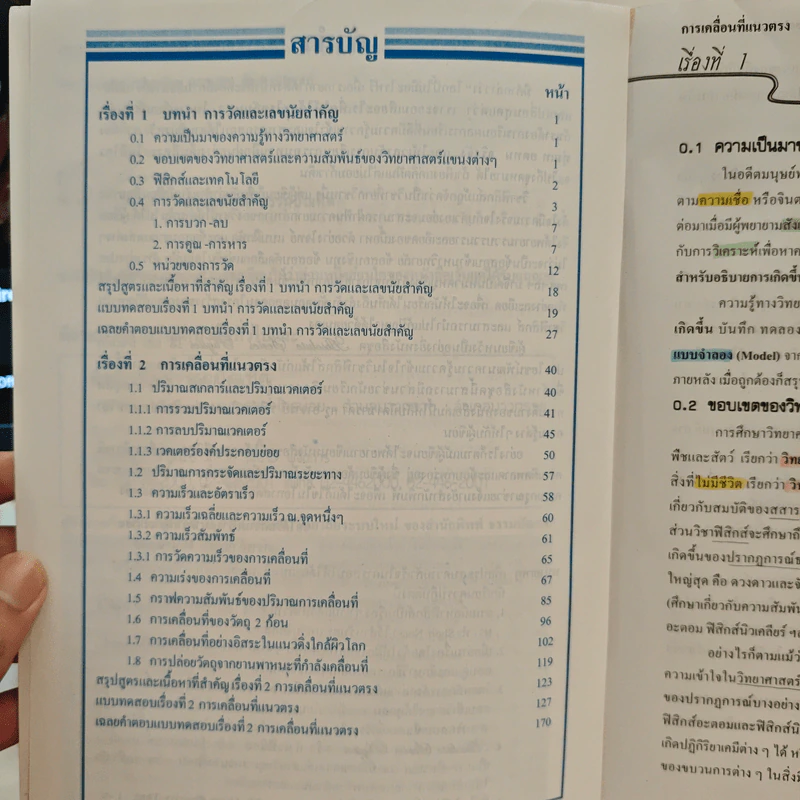 สารบัญ
หน้า
เรื่องที่ 1 บทนำ การวัดและเลขนัยสำคัญ 1
0.1 ความเป็นมาของความรู้ทางวิทยาศาสตร์ 1
0.2 ขอบเขตของวิทยาศาสตร์และความสัมพันธ์ของวิทยาศาสตร์แขนงต่างๆ 1
0.3 ฟิสิกส์และเทคโนโลยี 2
0.4 การวัดและเลขนัยสำคัญ 3
1. การบวก -ลบ 7
2. การคูณ -การหาร 7
0.5 หน่วยของการวัด 12
สรุปสูตรและเนื้อหาที่สำคัญ เรื่องที่ 1 บทนำ การวัดและเลขนัยสำคัญ 18
แบบทดสอบเรื่องที่ 1 บทนำ การวัดและเลขนัยสำคัญ 19
เฉลยคำตอบแบบทดสอบเรื่องที่ 1 บทนำ การวัดและเลขนัยสำคัญ 27
เรื่องที่ 2 การเคลื่อนที่แนวตรง 40
1.1 ปริมาณสเกลาร์และปริมาณเวคเตอร์ 40
1.1.1 การรวมปริมาณเวคเตอร์ 41
1.1.2 การลบปริมาณเวคเตอร์ 45
1.1.3 เวคเตอร์องค์ประกอบย่อย 50
1.2 ปริมาณการกระจัดและปริมาณระยะทาง 57
1.3 ความเร็วและอัตราเร็ว 58
1.3.1 ความเร็วเฉลี่ยและความเร็ว ณ.จุดหนึ่งๆ 60
1.3.2 ความเร็วสัมพัทธ์ 61
1.3.1 การวัดความเร็วของการเคลื่อนที่ 65
1.4 ความเร่งของการเคลื่อนที่ 67
1.5 กราฟความสัมพันธ์ของปริมาณการเคลื่อนที่ 85
1.6 การเคลื่อนที่ของวัตถุ 2 ก้อน 96
1.7 การเคลื่อนที่อย่างอิสระในแนวดิ่งใกล้ผิวโลก 102
1.8 การปล่อยวัตถุจากยานพาหนะที่กำลังเคลื่อนที่ 119
สรุปสูตรและเนื้อหาที่สำคัญ เรื่องที่ 2 การเคลื่อนที่แนวตรง 123
แบบทดสอบเรื่องที่ 2 การเคลื่อนที่แนวตรง 127
เฉลยคำตอบแบบทดสอบเรื่องที่ 2 การเคลื่อนที่แนวตรง 170
การเคลื่อนที่แนวตรง
เรื่องที่ 1
0.1 ความเป็นมาข
ในอดีตมนุษย์
ตามความเชื่อ หรือจินต
ต่อมาเมื่อมีผู้พยายามสัง
กับการวิเคราะห์เพื่อหาค
สำหรับอธิบายการเกิดขึ้
ความรู้ทางวิทย
เกิดขึ้น บันทึก ทดลอง
แบบจำลอง (Model) จาก
ภายหลัง เมื่อถูกต้องก็สรุ
0.2 ขอบเขตของวิท
การศึกษาวิทยาศ
พืชและสัตว์ เรียกว่า วิทย
สิ่งที่ไม่มีชีวิต เรียกว่า วิ
เกี่ยวกับสมบัติของสสาร
ส่วนวิชาฟิสิกส์จะศึกษาถึ
เกิดขึ้นของปรากฏการณ์ธ
ใหญ่สุด คือ ดวงดาวและจั
(ศึกษาเกี่ยวกับความสัมพัน
อะตอม ฟิสิกส์นิวเคลียร์ ฯล
อย่างไรก็ตามแม้ว่
ความเข้าใจในวิทยาศาสตร์
ของปรากฏการณ์บางอย่าง
ฟิสิกส์อะตอมและฟิสิกส์นิ
เกิดปฏิกิริยาเคมีต่าง ๆ ได้ ห
ของขบวนการต่าง ๆ ในสิ่งมี